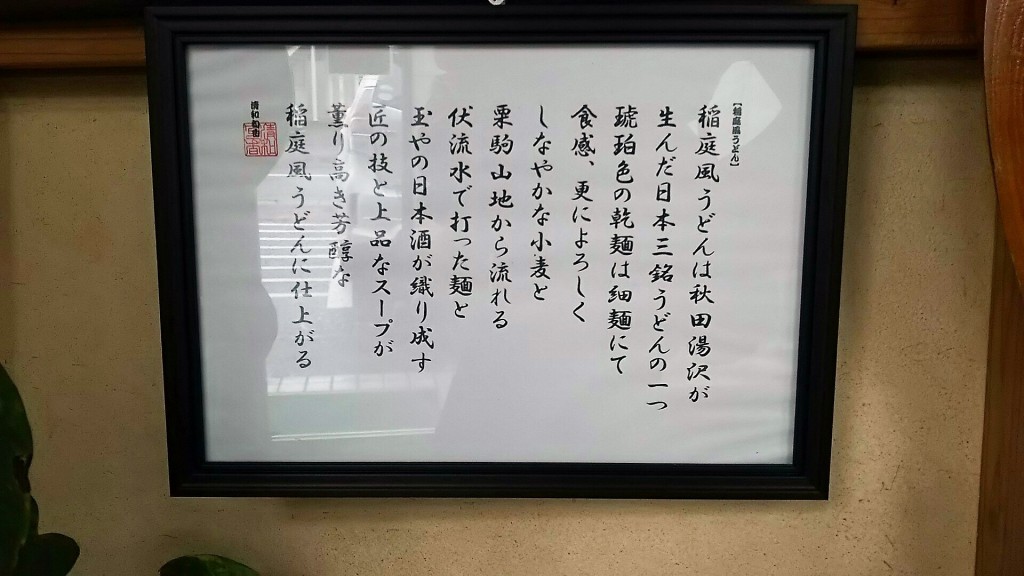 【稲庭風うどん】
稲庭風うどんは秋田湯沢が
生んだ日本三銘うどんの一つ
琥珀色の乾麺は細麺にて
食感、更によろしく
しなやかな小麦と
栗駒山地から流れる
伏流水で打った麺と
玉やの日本酒が織り成す
匠の技と上品なスープが
薫り高き芳醇な
稲庭風うどんに仕上がる
清和